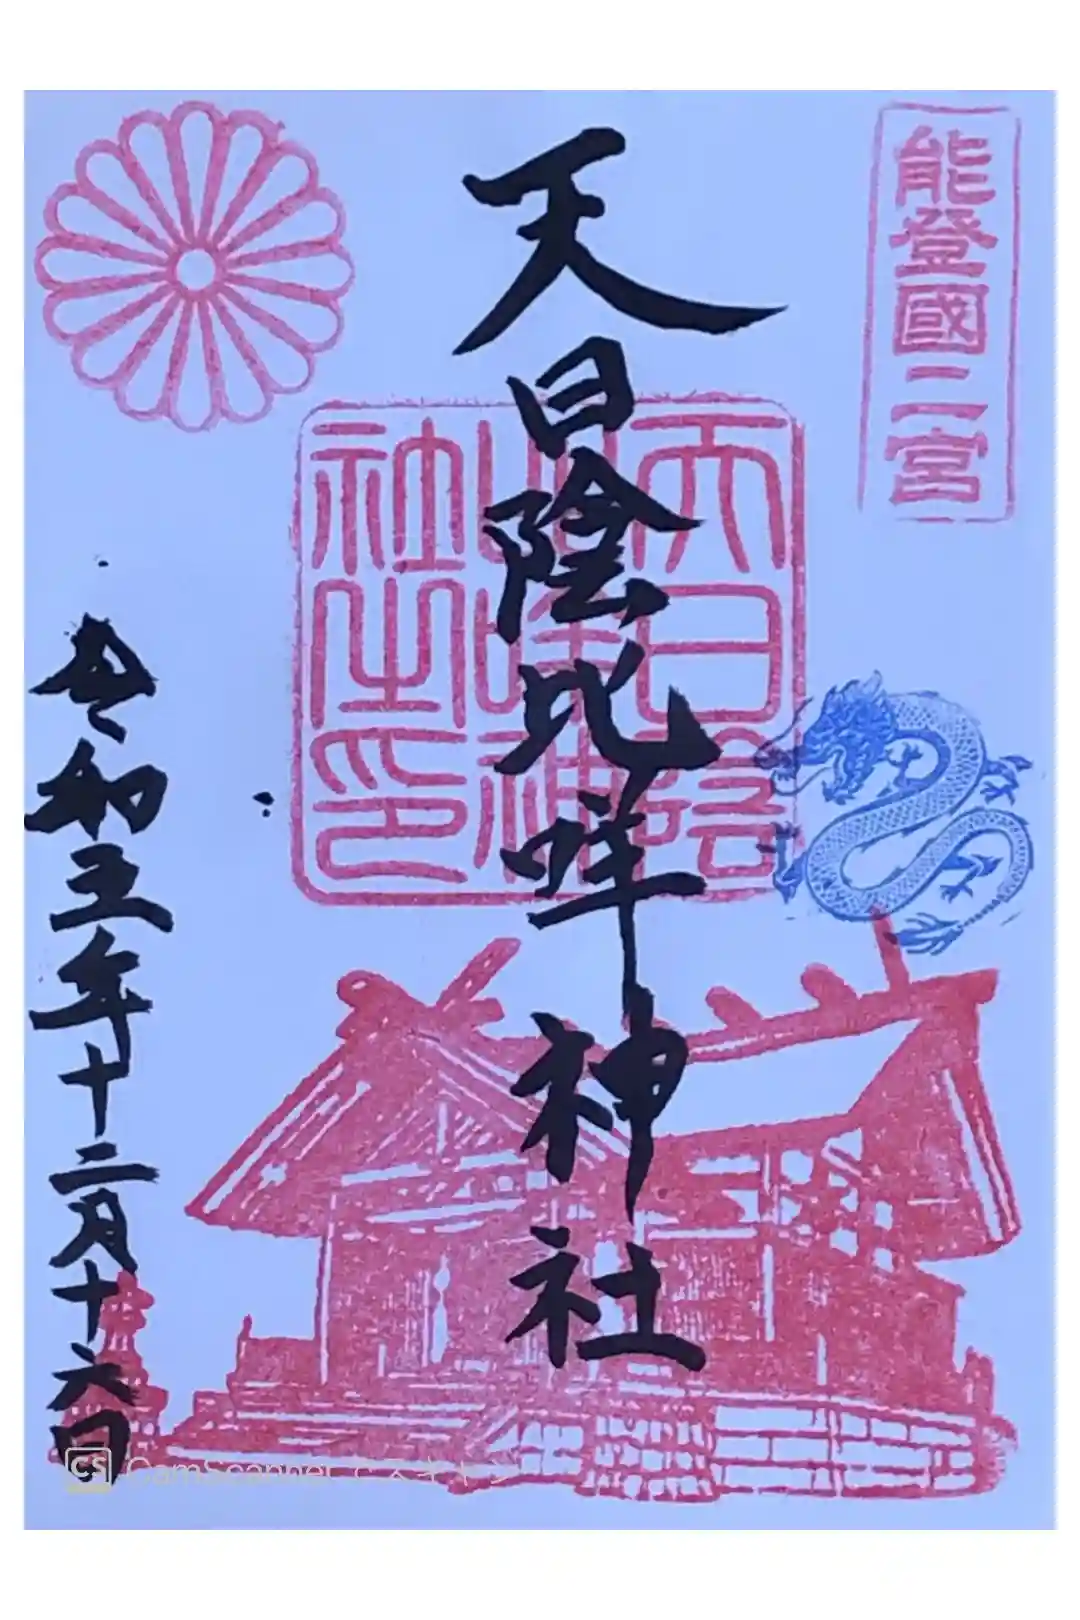 能登國二宮
天日陰比咩神社
天日陰比咩神社之印
令和五年十二月十六日
CS CamScanner でスキャン